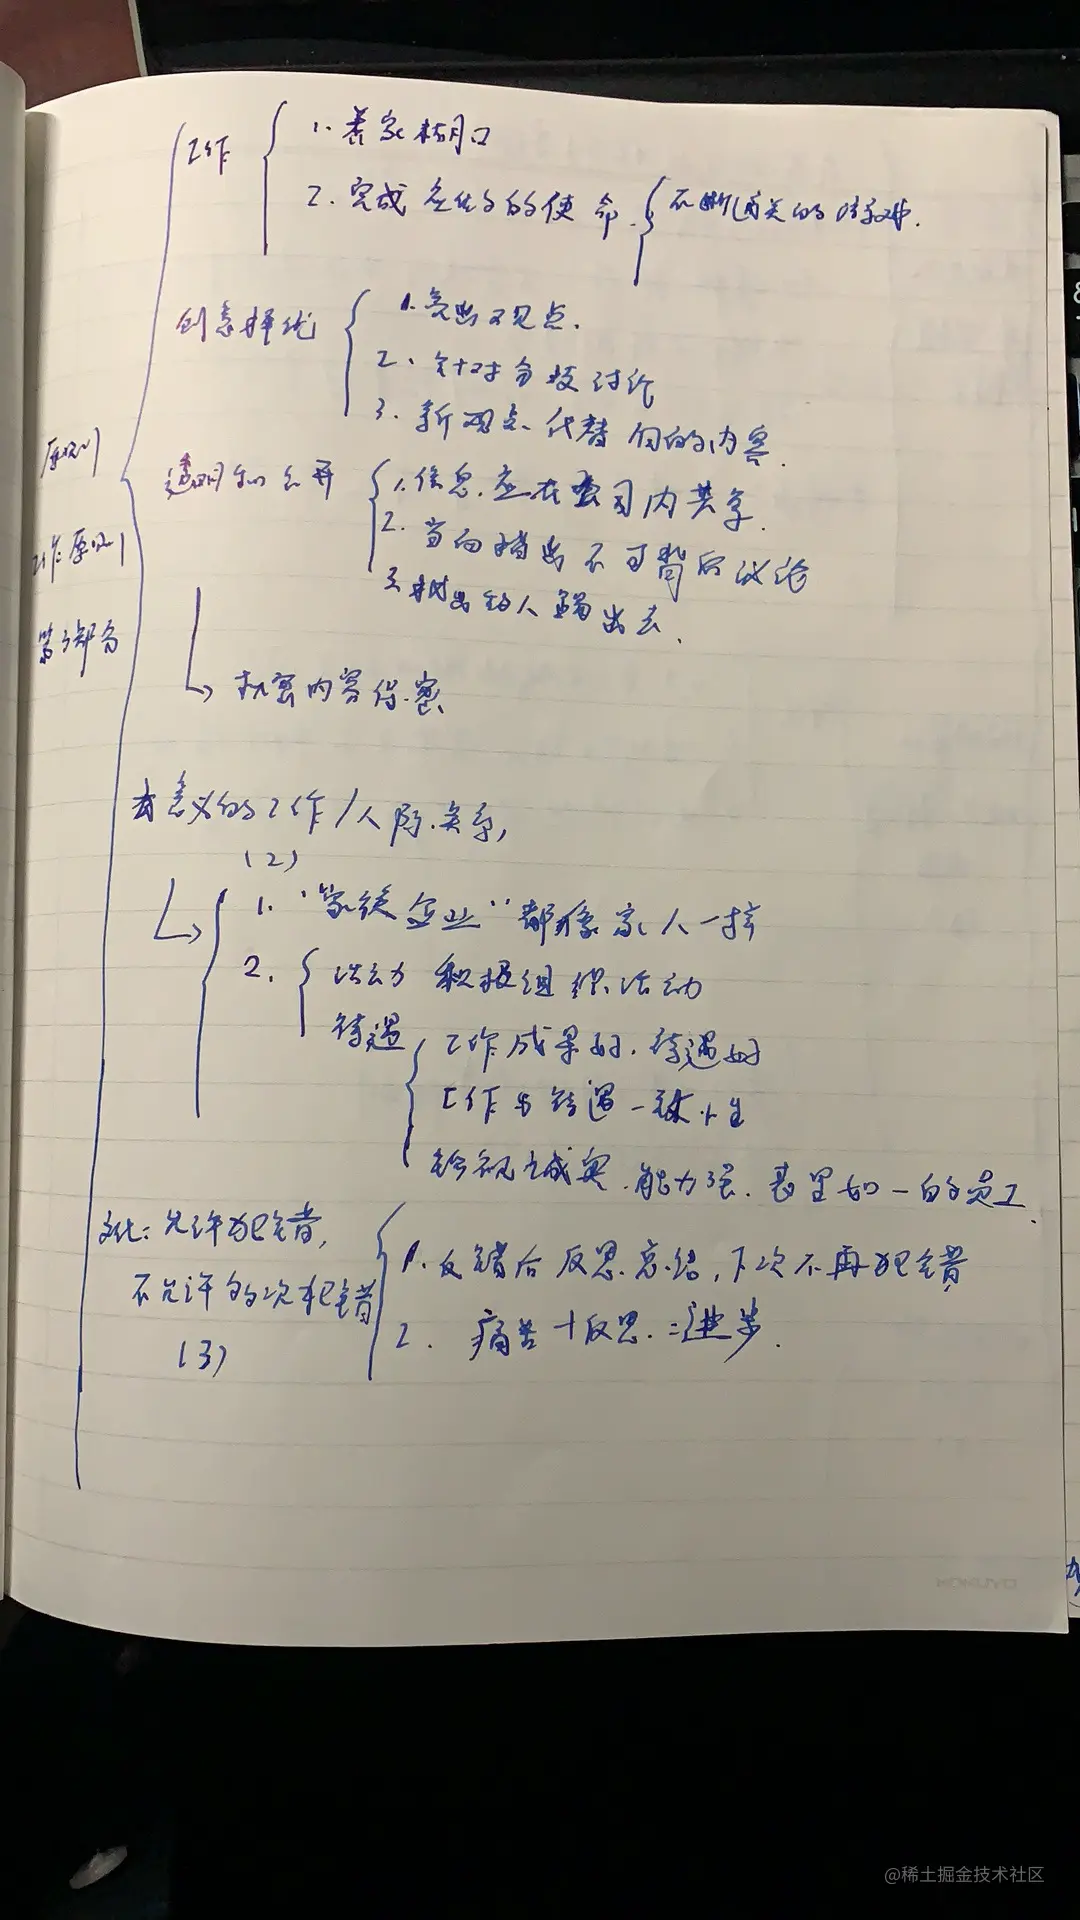 工作
1. 养家糊口
2. 完成 的使命
不断通关的
创意择优
1. 亮出观点.
2. 针对分歧讨论
3. 新观点代替旧的内容.
原则
透明和公开
1. 信息应在公司内共享.
2. 当面指出不可背后议论
工作原则
3.
出去.
第3部分
机密内容保密
有意义的工作/人际关系,
(2)
1. "家族企业"都像家人一样
2. 活动 积极组织活动
待遇
工作成果好.待遇好
工作与待遇一致性
诚实.能力强.表里如一的员工.
文化: 允许犯错,
不允许 次犯错
(3)
1. 错后反思总结,下次不再犯错
2. 痛苦+反思=进步.
@稀土掘金技术社区